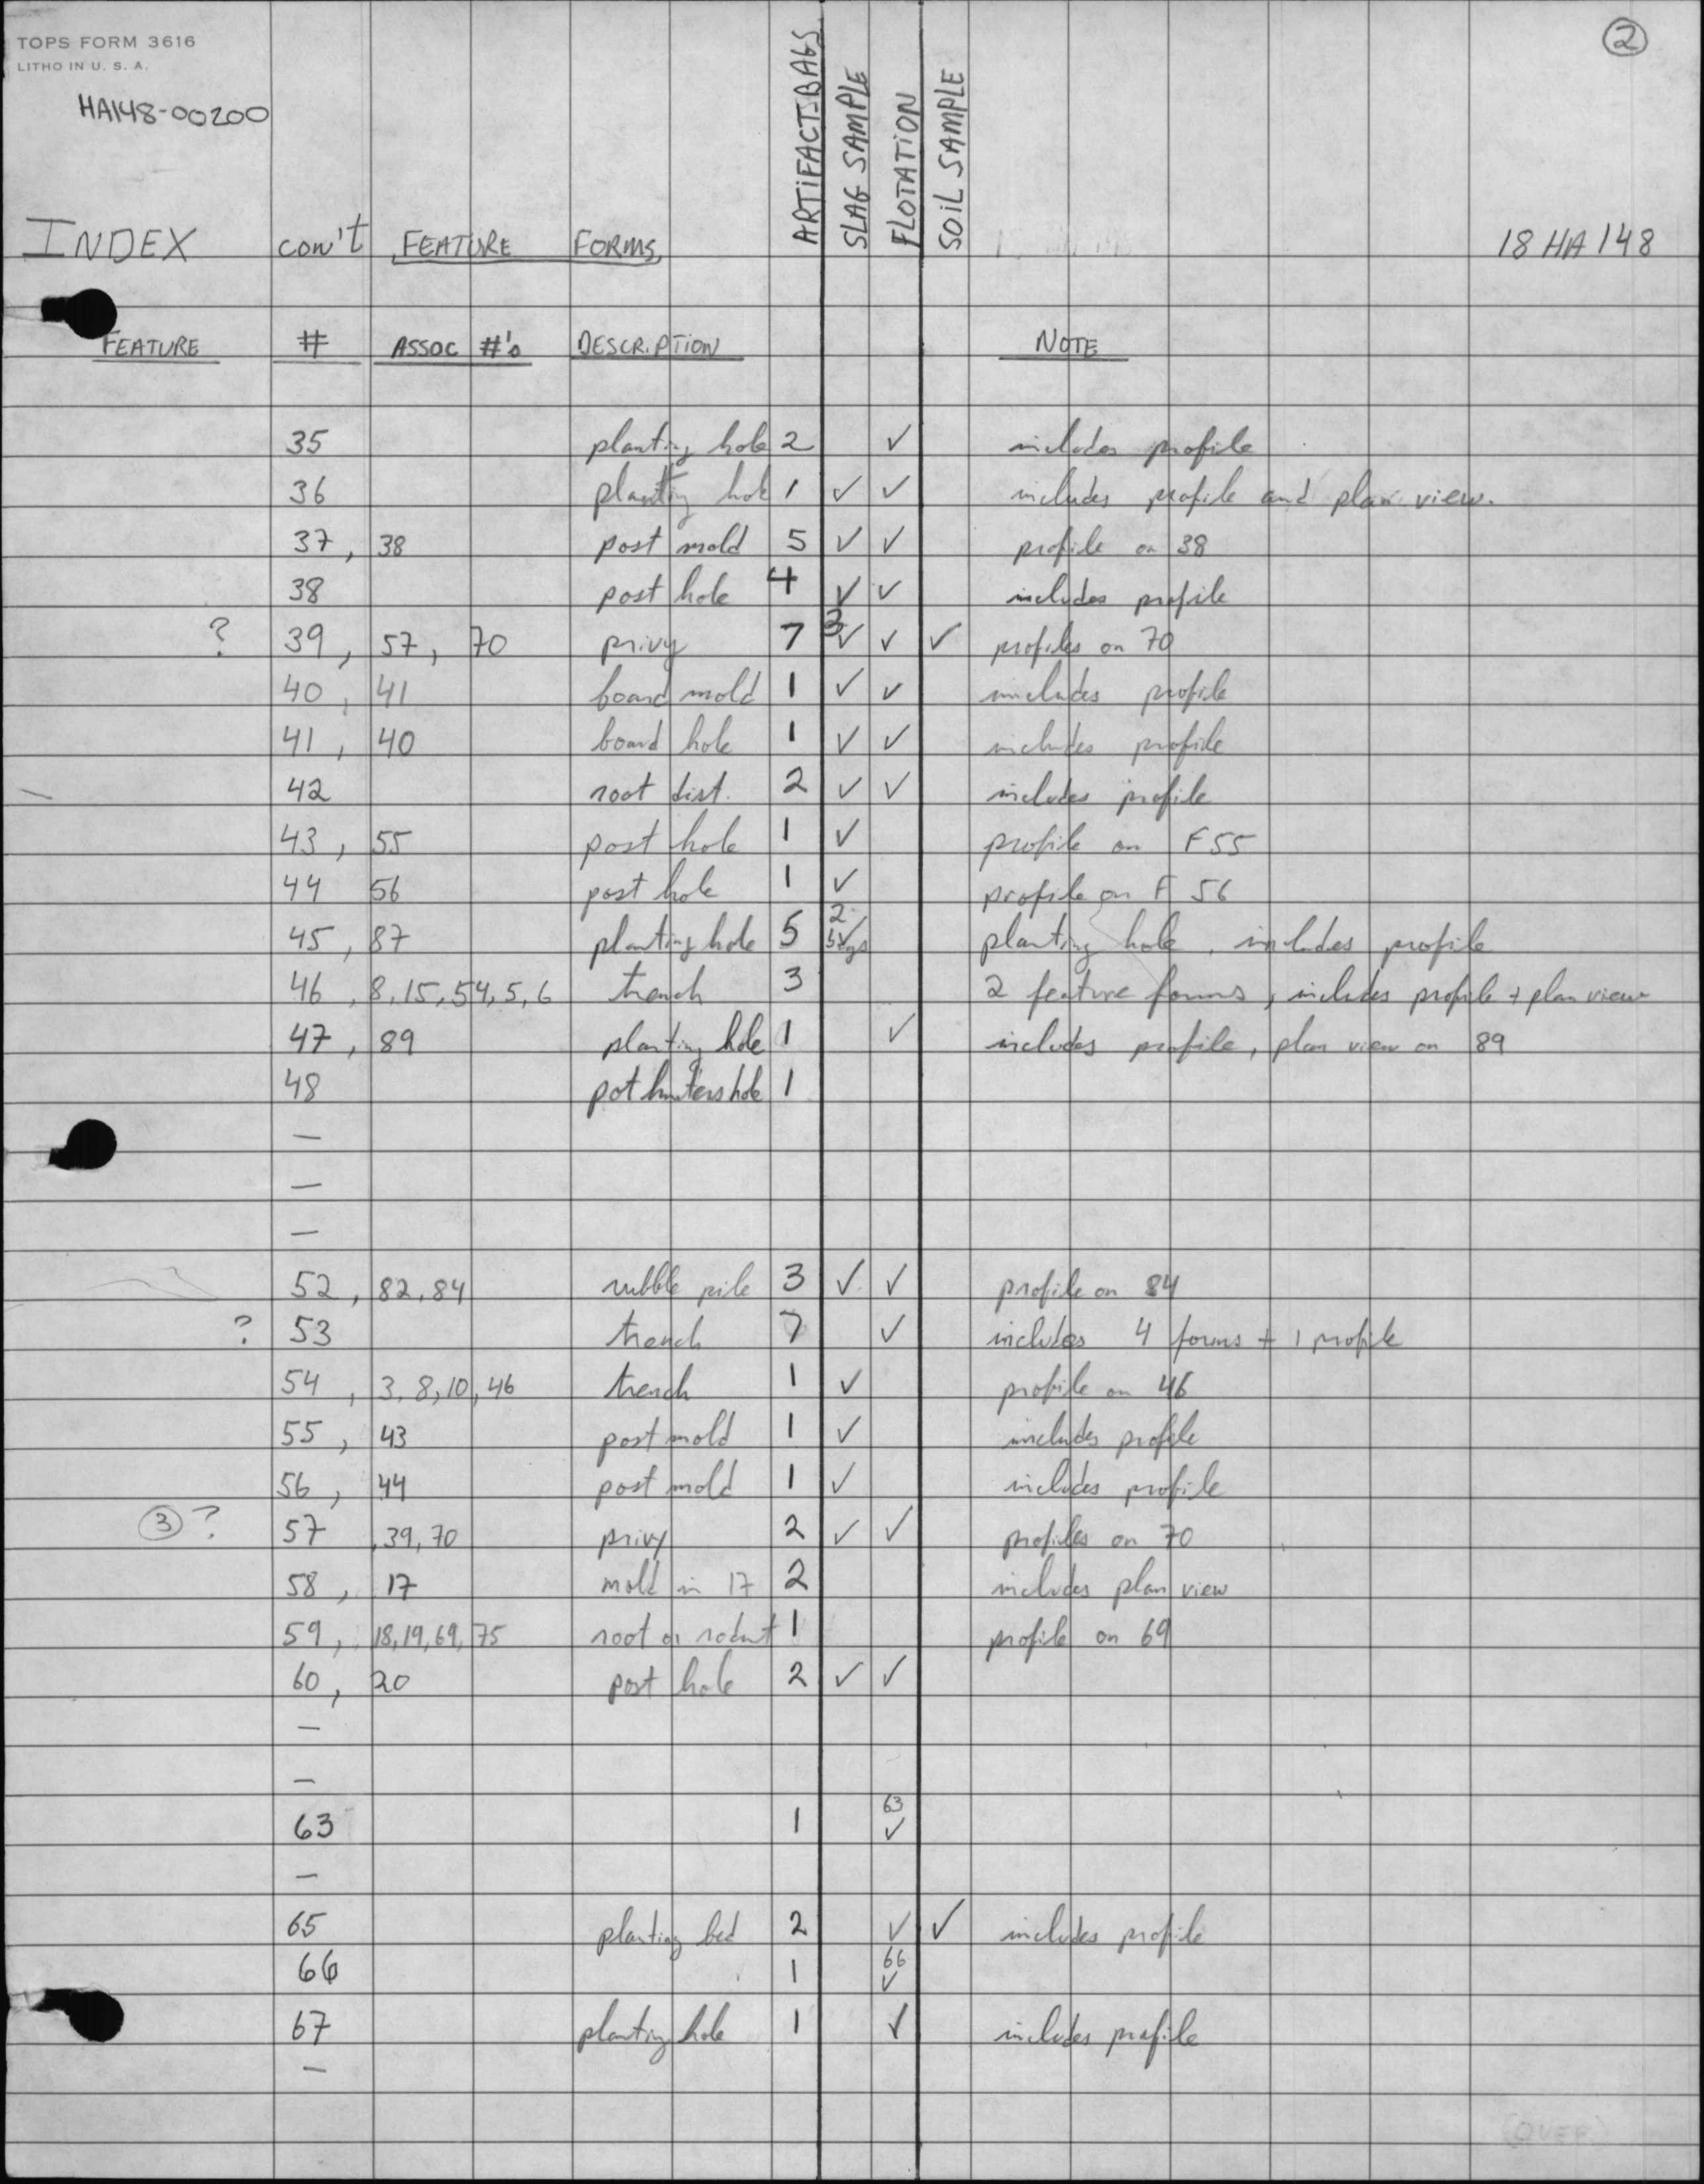 TOPS FORM 3616
LITHO IN U. S. A.
2
HA148-00200
ARTIFACT BAGS
SLAG SAMPLE
FLOTATION
SOIL SAMPLE
INDEX con't FEATURE FORMS 18 HA 148
FEATURE # ASSOC #'s DESCRIPTION NOTE
35 planting hole 2 ✓ includes profile
36 planting hole 1 ✓ ✓ includes profile and plan view.
37, 38 post mold 5 ✓ ✓ profile on 38
38 post hole 4 ✓ ✓ includes profile
? 39, 57, 70 privy 7 3 ✓ ✓ ✓ profiles on 70
40, 41 board mold 1 ✓ ✓ includes profile
41, 40 board hole 1 ✓ ✓ includes profile
— 42 root dist. 2 ✓ ✓ includes profile
43, 55 post hole 1 ✓ profile on F55
44 56 post hole 1 ✓ profile on F 56
45, 87 planting hole 5 2 ✓ planting hole, includes profile
46, 8, 15, 54, 5, 6 trench 3 2 feature forms, includes profile + plan view
47, 89 planting hole 1 ✓ includes profile, plan view on 89
48 pot hunters hole 1
—
—
—
52, 82, 84 rubble pile 3 ✓ ✓ profile on 84
? 53 trench 7 ✓ includes 4 forms + 1 profile
54, 3, 8, 10, 46 trench 1 ✓ profile on 46
55, 43 post mold 1 ✓ includes profile
56, 44 post mold 1 ✓ includes profile
3 ? 57, 39, 70 privy 2 ✓ ✓ profiles on 70
58, 17 mold in 17 2 includes plan view
59, 18, 19, 69, 75 root or rodent 1 profile on 69
60, 20 post hole 2 ✓ ✓
—
—
63 1 63 ✓
—
65 planting bed 2 ✓ ✓ includes profile
66 1 66 ✓
67 planting hole 1 ✓ includes profile
—
(OVER)